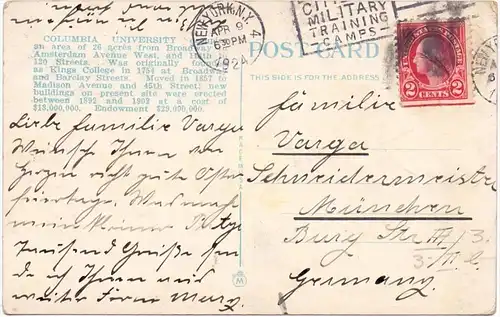 wünschen
NEW YORK, N.Y. 4
APR 9
6 30 PM
1924
MILITARY
TRAINING
CAMPS
COLUMBIA UNIVERSITY
an area of 26 acres from Broadway
Amsterdam Avenue West, and 116th
120 Streets. Was originally
as Kings College in 1754 at Broadway
and Barclay Streets. Moved in 1857 to
Madison Avenue and 45th Street; new
buildings on present site were erected
between 1892 and 1902 at a cost of
$15,000,000. Endowment $29,000,000.
PO
THIS SIDE IS FOR THE ADDRESS
2 CENTS 2
Liebe Familie Varga
Wünsche Ihnen von
Herzen recht gute Oster
feiertage. Was macht
mein kleiner
Tausend Grüße sen
de ich Ihnen und
Familie
Varga
Schneidermeister
München
Burg Str. III/3.
3/III l.
Germany